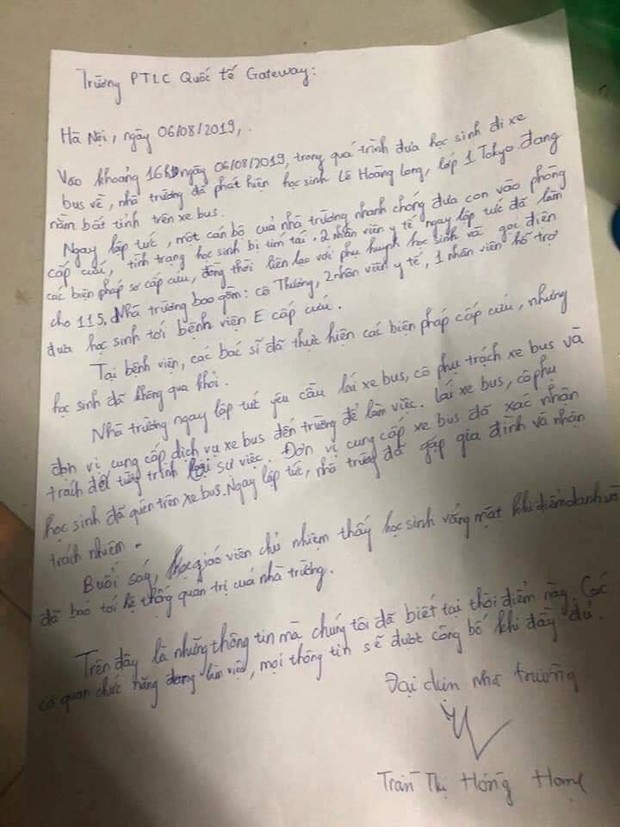 Trường PTLC Quốc tế Gateway:
Hà Nội, ngày 06/08/2019,
Vào khoảng 16h ngày 06/08/2019, trong quá trình đưa học sinh đi xe
bus về, nhà trường đã phát hiện học sinh Lê Hoàng Long, lớp 1 Tokyo đang
nằm bất tỉnh trên xe bus.
Ngay lập tức, một cán bộ của nhà trường nhanh chóng đưa con vào phòng
cấp cứu, tình trạng học sinh bị tím tái, 2 nhân viên y tế ngay lập tức đã làm
các biện pháp sơ cấp cứu, đồng thời liên lạc với phụ huynh học sinh và gọi điện
cho 115. Nhà trường bao gồm: cô Thương, 2 nhân viên y tế, 1 nhân viên hỗ trợ
đưa học sinh tới bệnh viện E cấp cứu.
Tại bệnh viện, các bác sĩ đã thực hiện các biện pháp cấp cứu, nhưng
học sinh đã không qua khỏi.
Nhà trường ngay lập tức yêu cầu lái xe bus, cô phụ trách xe bus và
đơn vị cung cấp dịch vụ xe bus đến trường để làm việc. Lái xe bus, cô phụ
trách để tường trình sự việc. Đơn vị cung cấp xe bus đã xác nhận
học sinh để quên trên xe bus. Ngay lập tức, nhà trường đã gặp gia đình và nhận
trách nhiệm.
Buổi sáng, giáo viên chủ nhiệm thấy học sinh vắng mặt khi điểm danh và
đã báo tới hệ thống quản trị của nhà trường.
Trên đây là những thông tin mà chúng tôi đã biết tại thời điểm này. Các
cơ quan chức năng đang làm việc, mọi thông tin sẽ được công bố khi đầy đủ.
Đại diện nhà trường
Trần Thị Hồng Hạnh